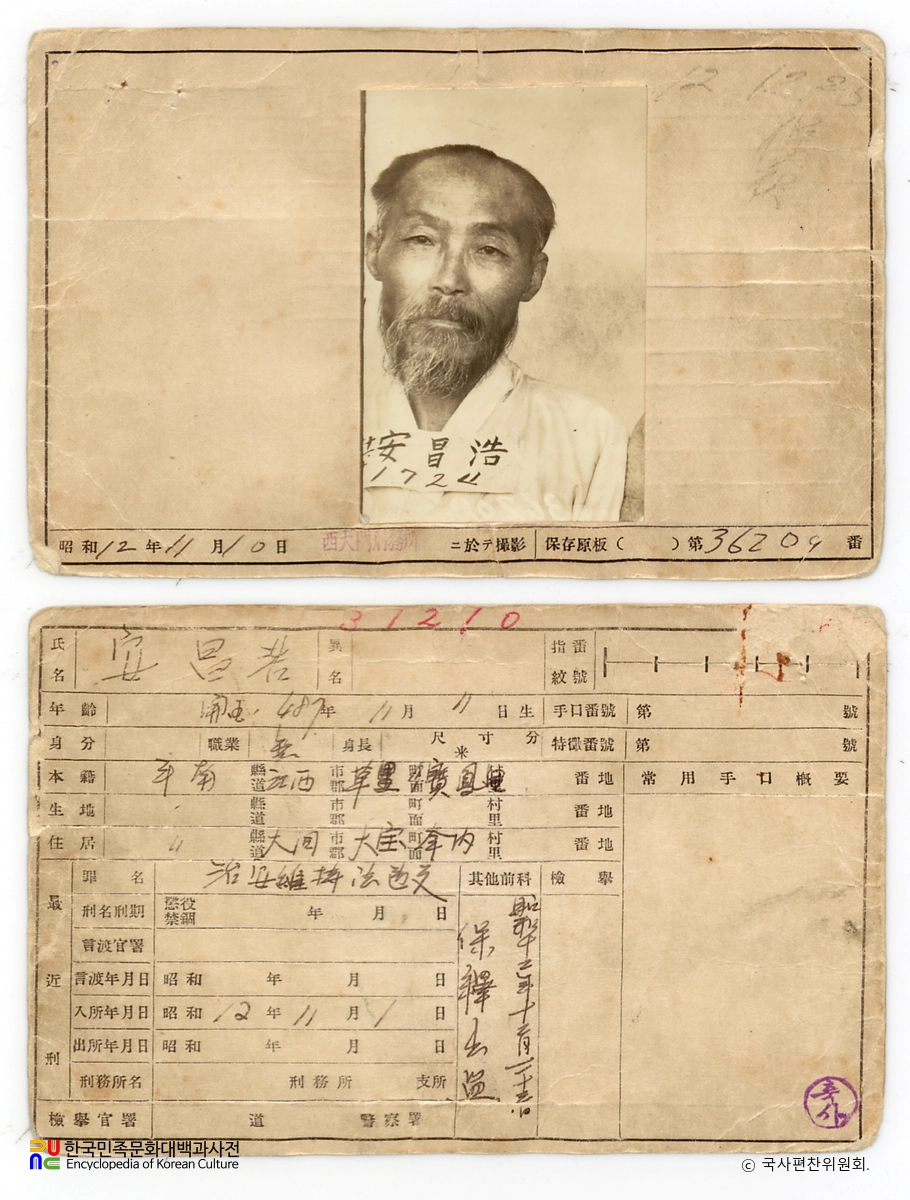 12 12. 25
安昌浩
1724
昭和12年11月10日 西大門刑務所 ニ於テ撮影 保存原板( )第36209番
31210
氏名 安昌浩 異名 指紋番號
年齡 開國 487年 11月 11日生 手口番號 第 號
身分 職業 無 身長 尺寸分 米 特徵番號 第 號
本籍 平南 縣道 江西 市郡 草里 町面 寶鳳 村里 番地 常用手口概要
生地 縣道 市郡 町面 村里 番地
住居 〃 縣道 大同 市郡 大宝 町面 村里 番地
最近刑
罪名 治安維持法違反 其他前科 檢擧
刑名刑期 懲役 禁錮 年 月 日
言渡官署
言渡年月日 昭和 年 月 日
入所年月日 昭和12年11月1日
出所年月日 昭和 年 月 日
刑務所名 刑務所 支所
檢擧官署 道 警察署
昭和十二年十二月二十五日
保釋出監
한국민족문화대백과사전
Encyclopedia of Korean Culture
ⓒ 국사편찬위원회.